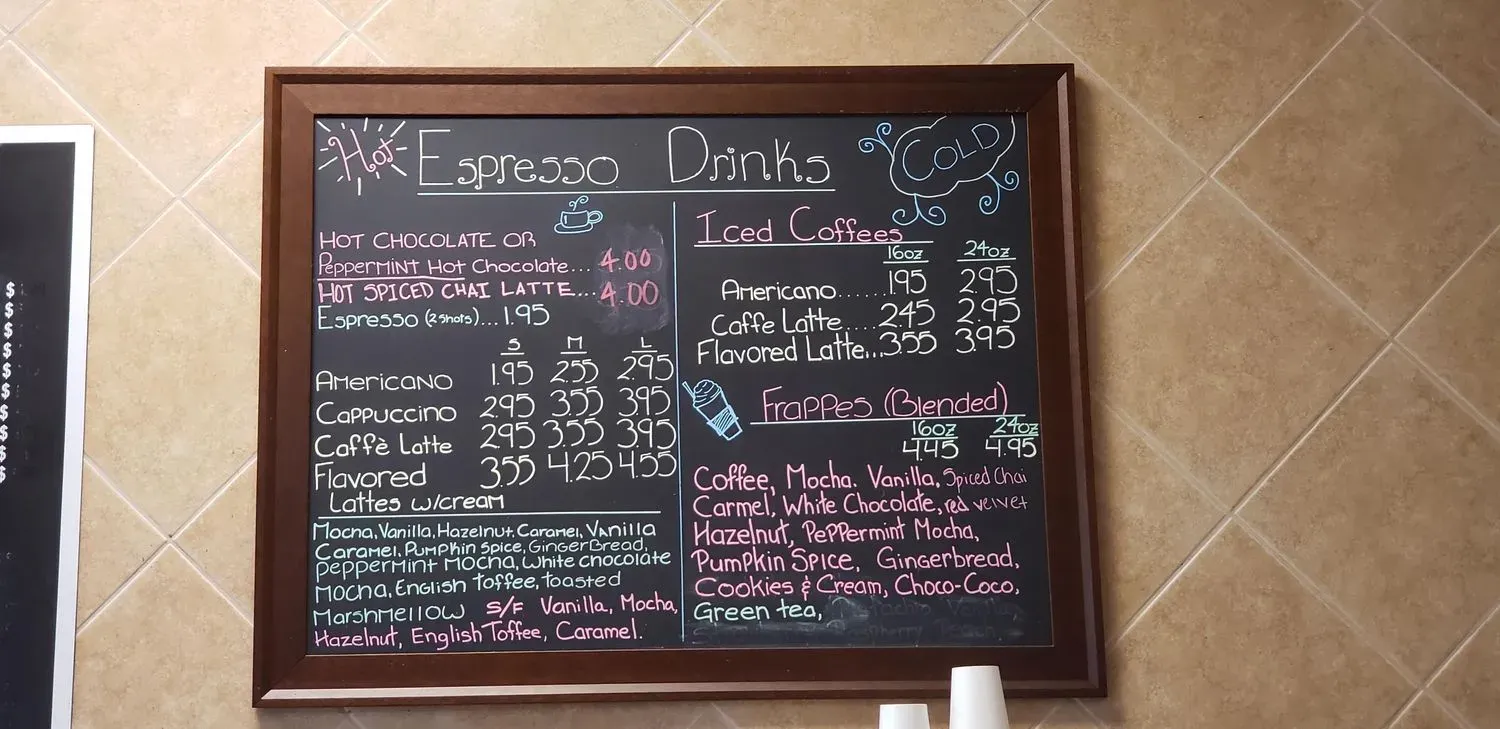 Hot Espresso Drinks COLD
HOT CHOCOLATE OR
PEPPERMINT HOT Chocolate... 4.00
HOT SPICED CHAI LATTE... 4.00
Espresso (2 shots)... 1.95
S M L
AMERICANO 1.95 2.55 2.95
CAPPUCCINO 2.95 3.55 3.95
Caffè Latte 2.95 3.55 3.95
Flavored 3.55 4.25 4.55
Lattes w/cream
Mocha, Vanilla, Hazelnut, Caramel, Vanilla
Caramel, Pumpkin Spice, GingerBread,
Peppermint Mocha, White chocolate
Mocha, English Toffee, toasted
Marshmellow S/F Vanilla, Mocha,
Hazelnut, English Toffee, Caramel.
Iced Coffees
16oz 24oz
Americano...... 1.95 2.95
Caffe Latte.... 2.45 2.95
Flavored Latte... 3.55 3.95
Frappes (Blended)
16oz 24oz
4.45 4.95
Coffee, Mocha. Vanilla, Spiced Chai
Carmel, White Chocolate, red velvet
Hazelnut, Peppermint Mocha,
Pumpkin Spice, Gingerbread,
Cookies & Cream, Choco-Coco,
Green tea,
$
$
$
$
$
$
$
$
$
$